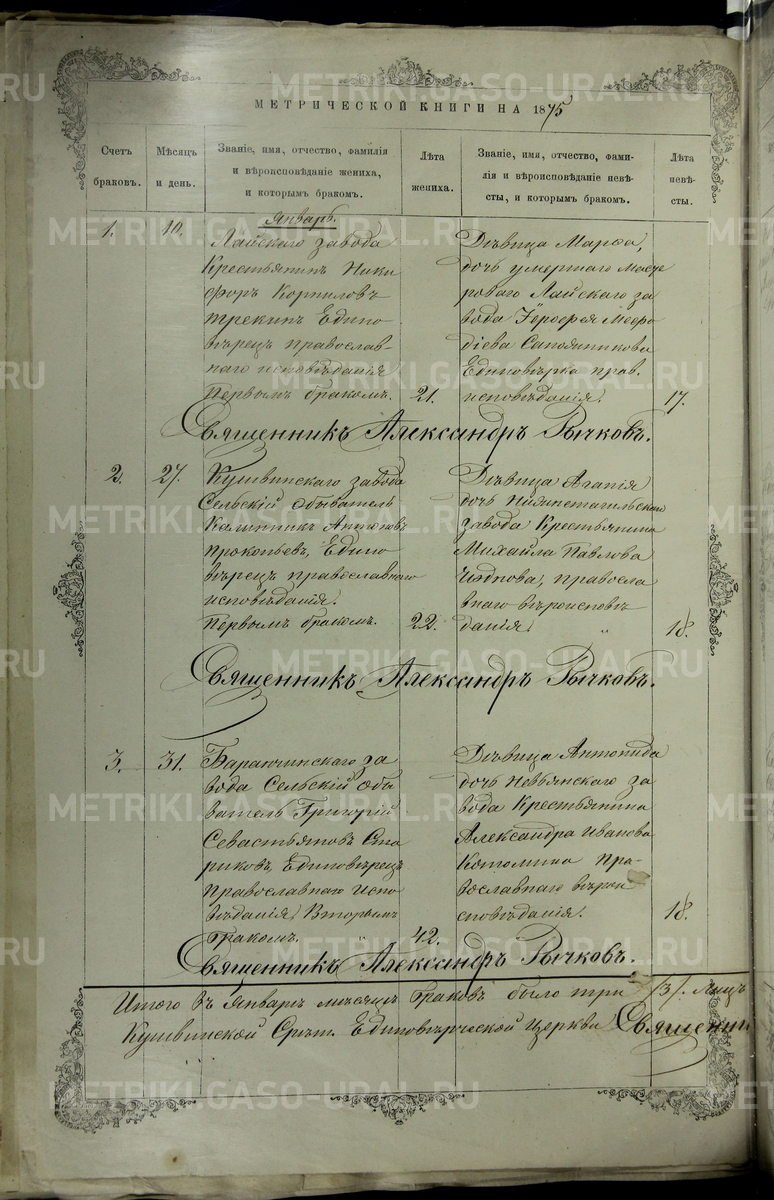 METRIKI.GASO-URAL.RU
МЕТРИЧЕСКОЙ КНИГИ НА 1875
Счетъ браковъ.
Мѣсяцъ и день.
Званіе, имя, отчество, фамилія
и вѣроисповѣданіе жениха,
и которымъ бракомъ.
Лѣта жениха.
Званіе, имя, отчество, фами-
лія и вѣроисповѣданіе невѣ-
сты, и которымъ бракомъ.
Лѣта невѣ-
сты.
Январь.
1.
10.
Лайскаго завода
Крестьянинъ Ники
форъ Корниловъ
Трекинъ Едино
вѣрецъ православ-
наго исповѣданія
Первымъ бракомъ.
21.
Дѣвица Марѳа,
дочь умершаго Масте
роваго Лайскаго за
вода Іерофея Меѳо
діева Сапожникова
Единовѣрка прав.
исповѣданія.
17.
Священникъ Александръ Рычковъ.
2.
27.
Кушвинскаго завода
Сельскій обыватель
Калинникъ Антоновъ
Прокопьевъ, Едино
вѣрецъ православнаго
исповѣданія.
Первымъ бракомъ.
22.
Дѣвица Агапія
дочь Нижнетагильскаго
завода Крестьянина
Михаила Павлова
православ
наго вѣроисповѣ
данія.
18.
Священникъ Александръ Рычковъ.
3.
31.
Баранчинскаго за
вода Сельскій обы
ватель Григорій
Севастьяновъ Ста
риковъ, Единовѣрецъ
Православнаго испо
вѣданія, Вторымъ
бракомъ.
42.
Дѣвица Антонида
дочь Невьянскаго за
вода Крестьянина
Александра Иванова
Котомина Пра-
вославнаго вѣрои
сповѣданія.
18.
Священникъ Александръ Рычковъ.
Итого въ Январѣ мѣсяцѣ браковъ было три /3/.
Кушвинской Срѣт. Единовѣрческой Церкви Священни